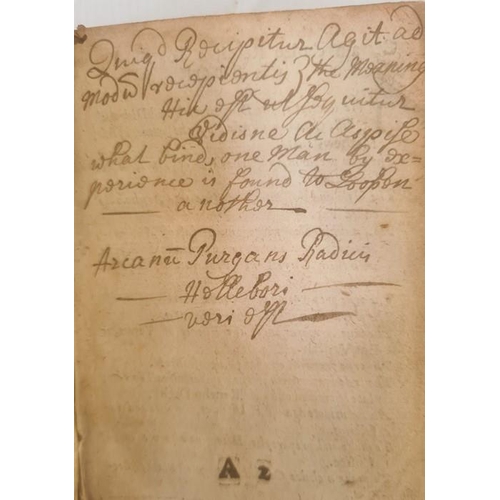 Quiqd Recipitur Agit ad
Modū recipientis the Meaning
Hic est ut sequitur
Vidisne Ac Aspise
what binds one Man by ex=
perience is found to Loosen
another
Arcanū Purgans Radicis
Hellebori
veri est
A 2